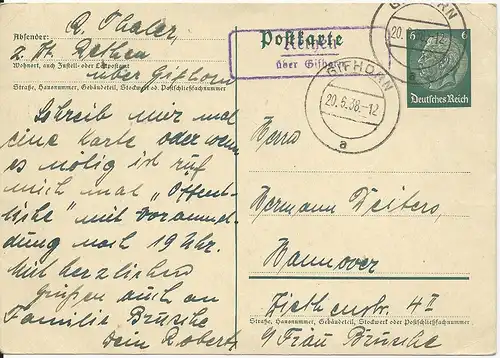 Absender: R. Thaler,
z. Zt. Rethen
Wohnort, auch Zustell- oder Leitpostamt
über Gifhorn
Straße, Hausnummer, Gebäudeteil, Stockwerk od. Postschließfachnummer
Schreib mir mal
eine Karte oder wenn
es nötig ist ruf
mich mal "Öffent-
liche" mit Voranmel-
dung nach 19 Uhr.
Mit herzlichen
Grüßen auch an
Familie Brunke
Dein Robert
Postkarte
Rethen
über Gifhorn
GIFHORN
20.6.38.-12
a
GIFHORN
20.6.38.-12
a
6 6
Deutsches Reich
Herrn
Hermann Deiters,
Hannover
Ziethenstr. 4 II
Straße, Hausnummer, Gebäudeteil, Stockwerk oder Postschließfachnummer
Frau Brunke